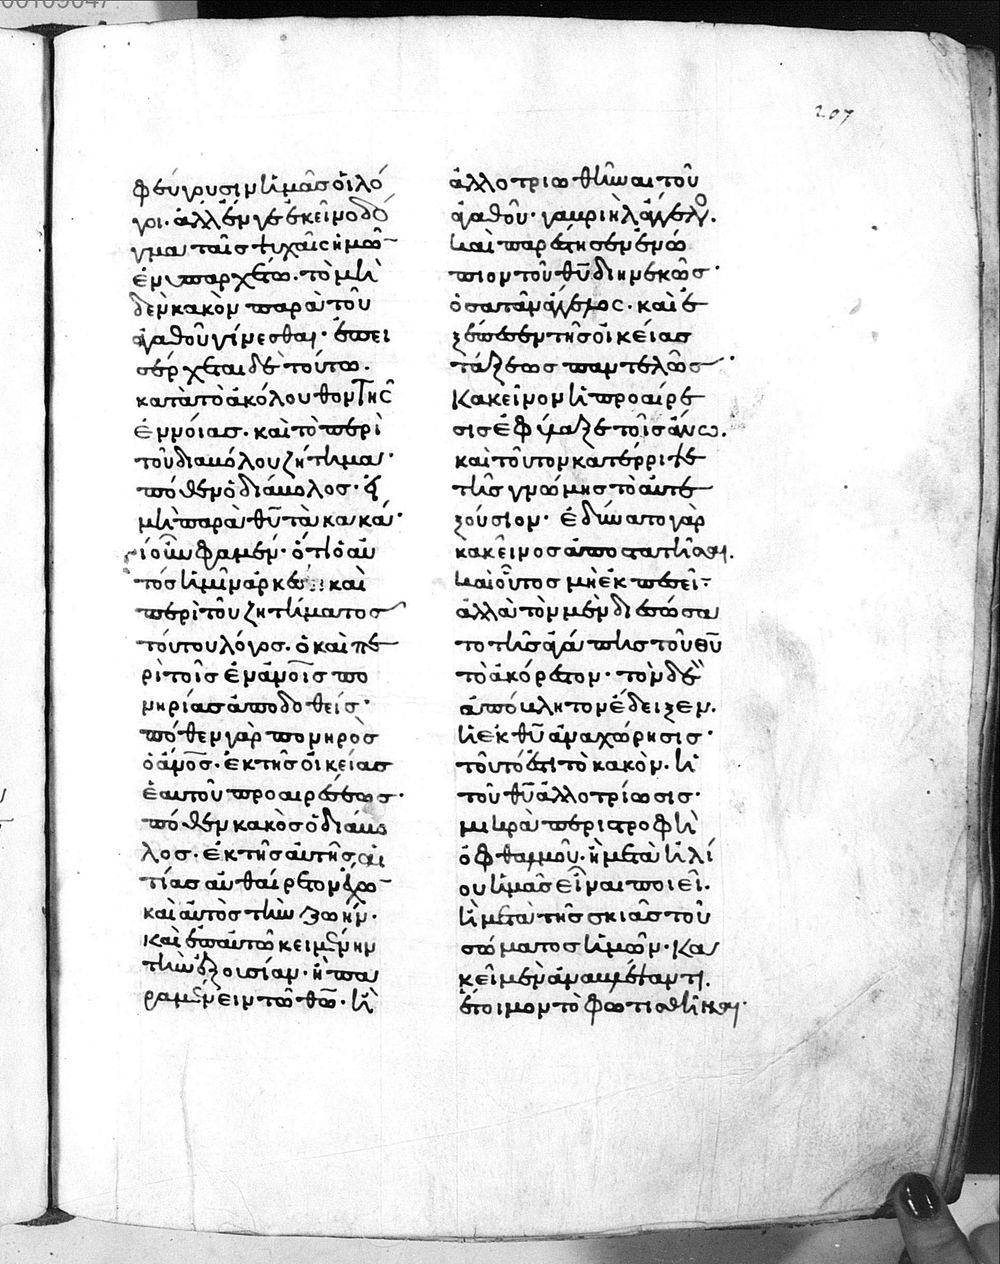 207
φεύγουσιν ἡμᾶς οἱ λό
γοι· ἀλλ' ἕν γε ἐκεῖνο δό
γμα ταῖς ψυχαῖς ἡμῶν
ἐνυπαρχέτω. τὸ μὴ
δὲν κακὸν παρὰ τοῦ
ἀγαθοῦ γίνεσθαι· ἐπει
σέρχεται δὲ τούτω.
κατὰ τὸ ἀκόλουθον τῆς
ἐννοίας. καὶ τὸ περὶ
τοῦ διαβόλου ζήτημα·
πόθεν ὁ διάβολος· εἰ
μὴ παρὰ θῦ τὰ κακά·
τί οὖν φαμέν· ὅτι ὁ αὐ
τὸς ἡμῖν ἀρκέσει καὶ
περὶ τοῦ ζητήματος
τούτου λόγος. ὁ καὶ πε
ρὶ τοῖς ἐν ἀνοῖς πο
νηρίας ἀποδοθείς·
πόθεν γὰρ πονηρὸς
ὁ ἀνος. ἐκ τῆς οἰκείας
ἑαυτοῦ προαιρέσεως·
πόθεν κακὸς ὁ διάβο
λος. ἐκ τῆς αὐτῆς αἰ
τίας αὐθαίρετον ἔχω
καὶ αὐτὸς τὴν ζωήν.
καὶ ἐπ' αὐτῶ κειμένην
τὴν ἐξουσίαν· ἢ πα
ραμένειν τῶ θῶ. ἢ
ἀλλοτριωθῆναι τοῦ
ἀγαθοῦ· γαβριὴλ ἄγγελος.
καὶ παρέστησεν ἐνώ
πιον τοῦ θῦ διηνεκῶς·
ὁ σατὰν ἄγγελος. καὶ ἐ
ξέπεσεν τῆς οἰκείας
τάξεως παντελῶς·
Κἀκεῖνον ἡ προαίρε
σις ἐφύλαξε τοῖς ἄνω.
καὶ τοῦτον κατέρριψε
τῆς γνώμης τὸ αὐτε
ξούσιον· ἐδύνατο γὰρ
κἀκεῖνος ἀποστατῆσαι.
καὶ οὗτος μὴ ἐκπεσεῖν·
ἀλλὰ τὸν μὲν διέσωσα
το τῆς ἀγάπης τοῦ θῦ
τὸ ἀκόρεστον· τὸν δὲ
ἀπόβλητον ἔδειξεν.
ἡ ἐκ θῦ ἀναχώρησις·
τοῦτό ἐστι τὸ κακὸν. ἡ
τοῦ θῦ ἀλλοτρίωσις·
μικρὰ περιστροφὴ
ὀφθαλμοῦ. ἢ μετὰ ἡλί
ου ἡμᾶς εἶναι ποιεῖ.
ἢ μετὰ τῆς σκιᾶς τοῦ
σώματος ἡμῶν. Κα
κεῖ μὲν ἀναβλέψαντι.
ἕτοιμον τὸ φωτισθῆναι·